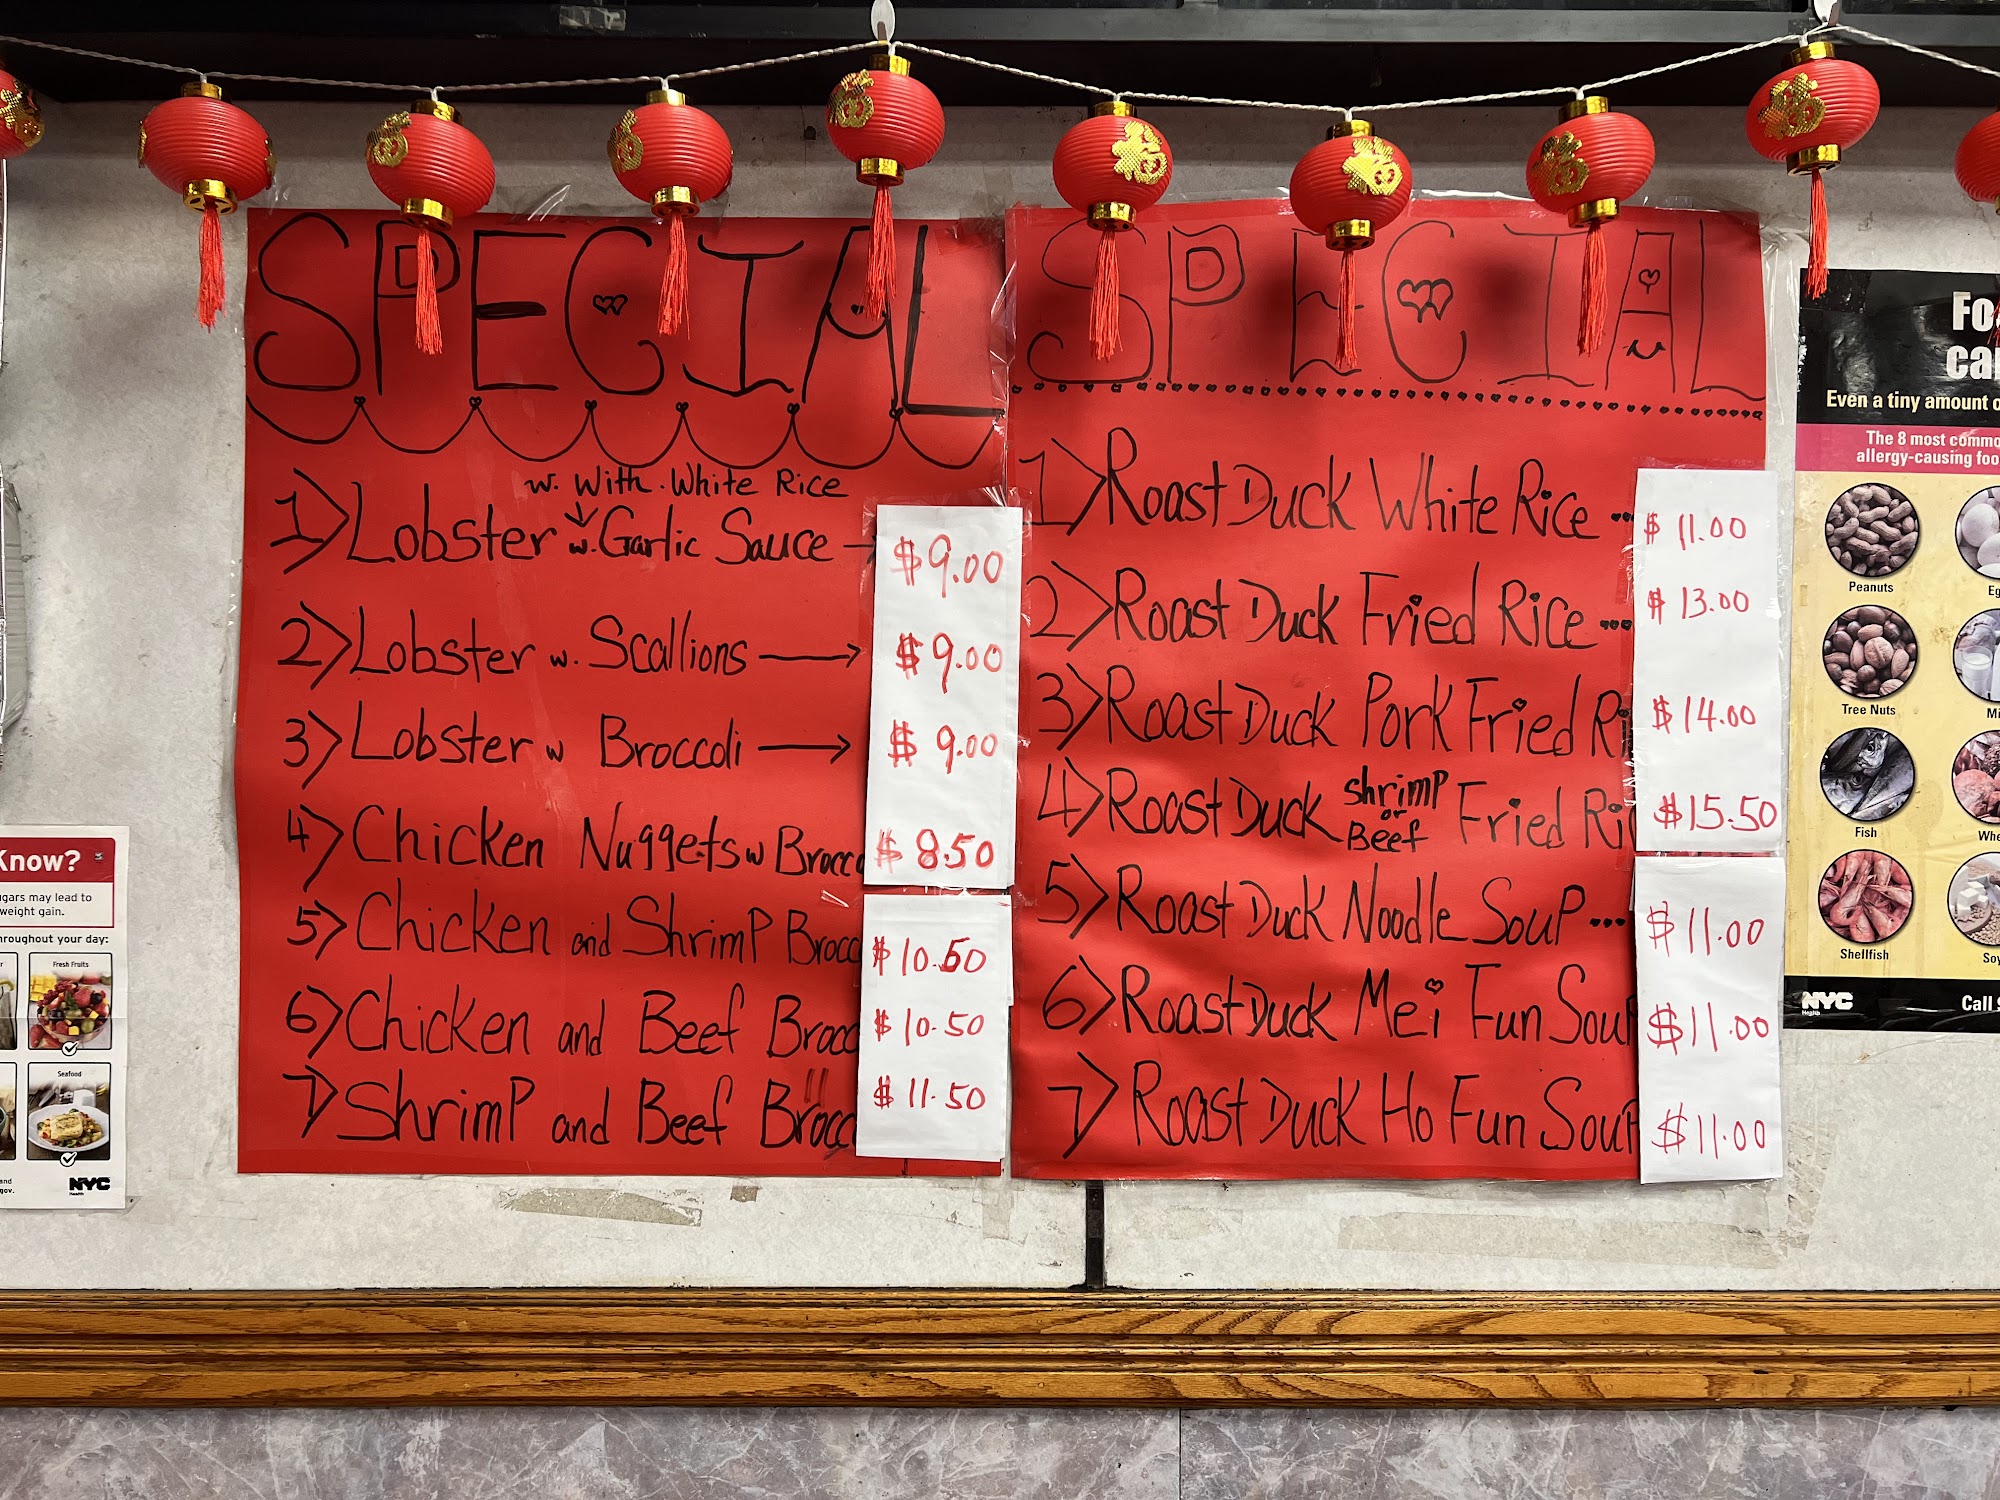 SPECIAL
w. With. White Rice
1) Lobster w. Garlic Sauce $9.00
2) Lobster w. Scallions $9.00
3) Lobster w Broccoli $9.00
4) Chicken Nuggets w Brocco $8.50
5) Chicken and Shrimp Brocc $10.50
6) Chicken and Beef Brocc $10.50
7) Shrimp and Beef Brocc $11.50
SPECIAL
1) Roast Duck White Rice ... $11.00
2) Roast Duck Fried Rice ... $13.00
3) Roast Duck Pork Fried Ri $14.00
4) Roast Duck Shrimp or Beef Fried Ri $15.50
5) Roast Duck Noodle Soup ... $11.00
6) Roast Duck Mei Fun Soup $11.00
7) Roast Duck Ho Fun Soup $11.00
Know?
ugars may lead to
weight gain.
hroughout your day:
Fresh Fruits
Seafood
and
gov.
NYC
Health
Fo
ca
Even a tiny amount o
The 8 most commo
allergy-causing foo
Peanuts
Eg
Tree Nuts
Mi
Fish
Whe
Shellfish
Soy
NYC
Health
Call
福
福
福
福
福
福
福
福